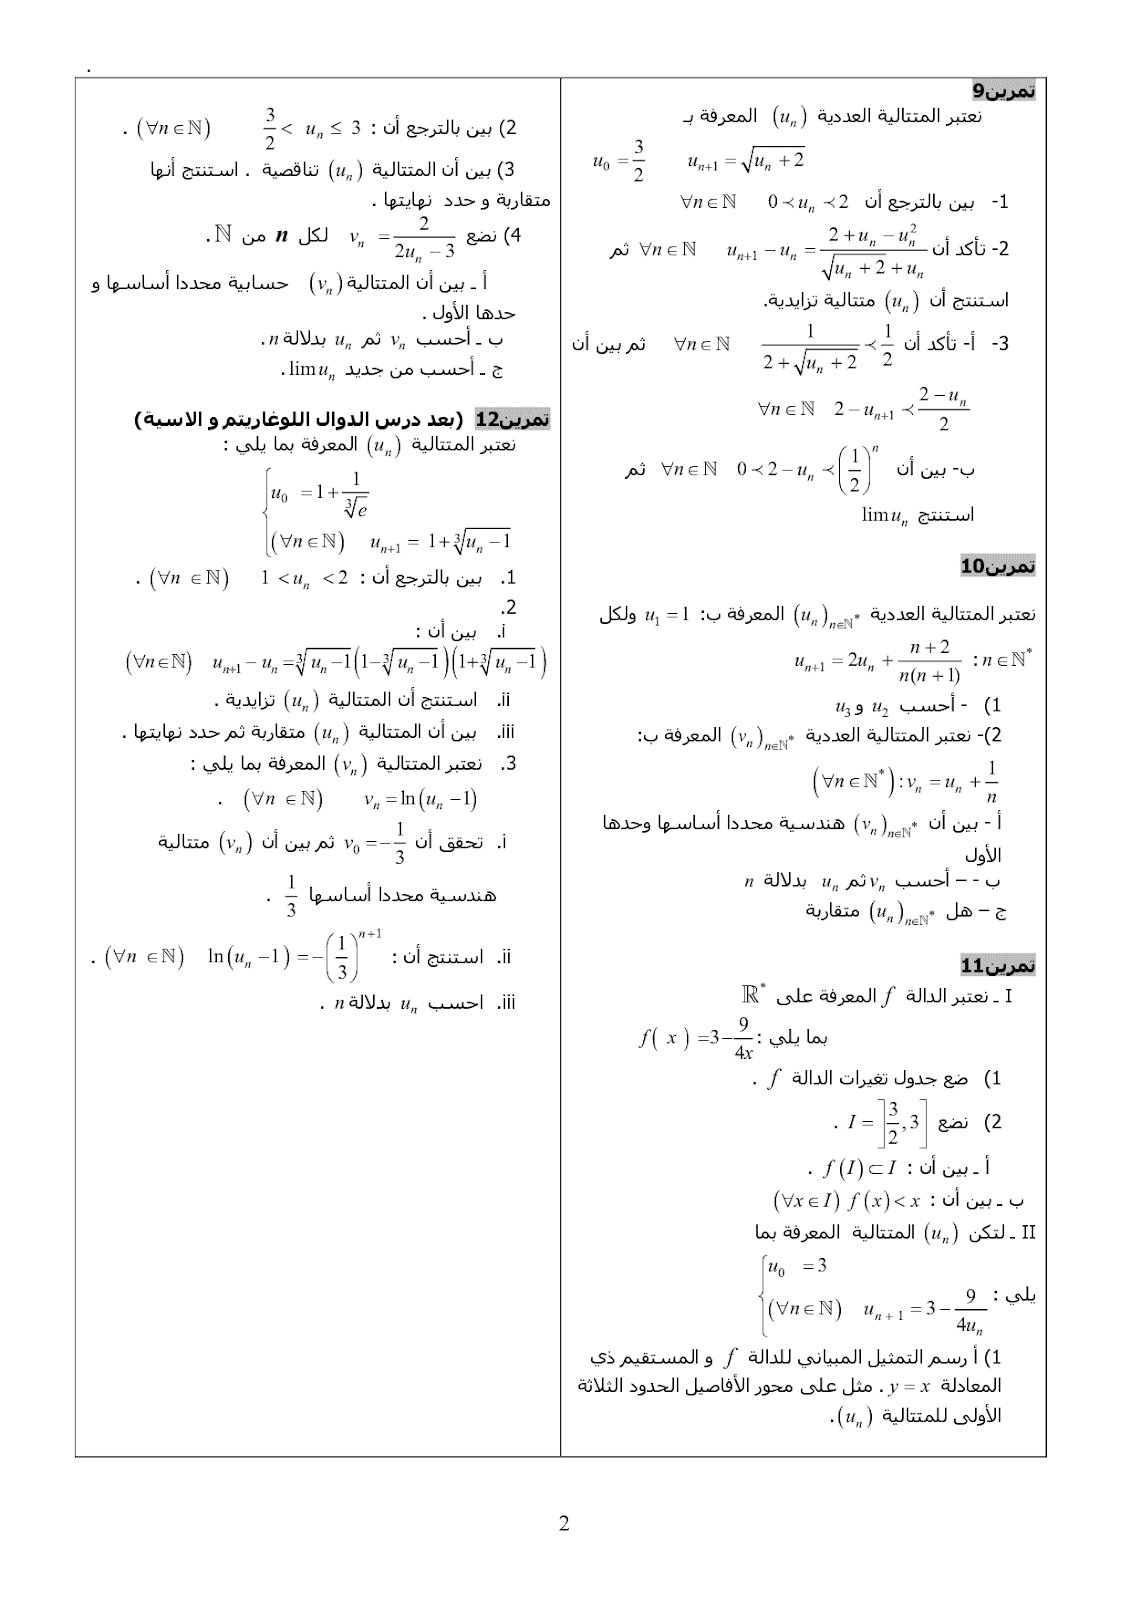 .
تمرين9
نعتبر المتتالية العددية (uₙ) المعرفة بـ
u₀ = 3/2 uₙ₊₁ = √(uₙ + 2)
1- بين بالترجع أن 0 ≺ uₙ ≺ 2 ∀n ∈ ℕ
2- تأكد أن uₙ₊₁ − uₙ = (2 + uₙ − uₙ²)/(√(uₙ + 2) + uₙ) ∀n ∈ ℕ ثم
استنتج أن (uₙ) متتالية تزايدية.
3- أ- تأكد أن 1/(2 + √(uₙ + 2)) ≺ 1/2 ∀n ∈ ℕ ثم بين أن
∀n ∈ ℕ 2 − uₙ₊₁ ≺ (2 − uₙ)/2
ب- بين أن 0 ≺ 2 − uₙ ≺ (1/2)ⁿ ∀n ∈ ℕ ثم
استنتج lim uₙ
تمرين10
نعتبر المتتالية العددية (uₙ)ₙ∈ℕ* المعرفة ب: u₁ = 1 ولكل
n ∈ ℕ* : uₙ₊₁ = 2uₙ + (n + 2)/(n(n + 1))
1) - أحسب u₂ و u₃
2)- نعتبر المتتالية العددية (vₙ)ₙ∈ℕ* المعرفة ب:
(∀n ∈ ℕ*) : vₙ = uₙ + 1/n
أ - بين أن (vₙ)ₙ∈ℕ* هندسية محددا أساسها وحدها
الأول
ب - – أحسب vₙ ثم uₙ بدلالة n
ج – هل (uₙ)ₙ∈ℕ* متقاربة
تمرين11
I ـ نعتبر الدالة f المعرفة على ℝ*
بما يلي : f( x ) = 3 − 9/(4x)
1) ضع جدول تغيرات الدالة f .
2) نضع I = ]3/2 , 3] .
أ ـ بين أن : f(I) ⊂ I .
ب ـ بين أن : (∀x ∈ I) f(x) < x
II ـ لتكن (uₙ) المتتالية المعرفة بما
يلي : { u₀ = 3
(∀n ∈ ℕ) uₙ₊₁ = 3 − 9/(4uₙ)
1) أ رسم التمثيل المبياني للدالة f و المستقيم ذي
المعادلة y = x . مثل على محور الأفاصيل الحدود الثلاثة
الأولى للمتتالية (uₙ).
2) بين بالترجع أن : 3/2 < uₙ ≤ 3 (∀n ∈ ℕ) .
3) بين أن المتتالية (uₙ) تناقصية . استنتج أنها
متقاربة و حدد نهايتها .
4) نضع vₙ = 2/(2uₙ − 3) لكل n من ℕ .
أ ـ بين أن المتتالية (vₙ) حسابية محددا أساسها و
حدها الأول .
ب ـ أحسب vₙ ثم uₙ بدلالة n .
ج ـ أحسب من جديد lim uₙ .
تمرين12 (بعد درس الدوال اللوغاريتم و الاسية)
نعتبر المتتالية (uₙ) المعرفة بما يلي :
{ u₀ = 1 + 1/∛e
(∀n ∈ ℕ) uₙ₊₁ = 1 + ∛(uₙ − 1)
1. بين بالترجع أن : 1 < uₙ < 2 (∀n ∈ ℕ) .
2.
i. بين أن :
(∀n ∈ ℕ) uₙ₊₁ − uₙ = ∛(uₙ − 1) (1 − ∛(uₙ − 1)) (1 + ∛(uₙ − 1))
ii. استنتج أن المتتالية (uₙ) تزايدية .
iii. بين أن المتتالية (uₙ) متقاربة ثم حدد نهايتها .
3. نعتبر المتتالية (vₙ) المعرفة بما يلي :
(∀n ∈ ℕ) vₙ = ln(uₙ − 1) .
i. تحقق أن v₀ = −1/3 ثم بين أن (vₙ) متتالية
هندسية محددا أساسها 1/3 .
ii. استنتج أن : ln(uₙ − 1) = −(1/3)ⁿ⁺¹ (∀n ∈ ℕ) .
iii. احسب uₙ بدلالة n .
2